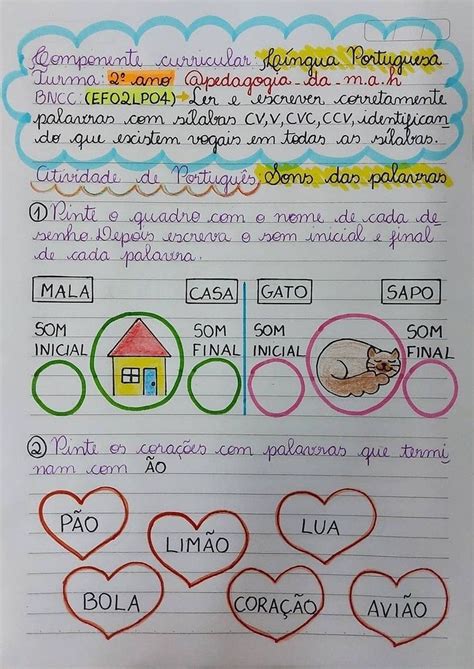 Componente curricular: Língua Portuguesa
Turma: 2º ano @pedagogia_da_m.a.h
BNCC: (EF02LP04) → Ler e escrever corretamente
palavras com sílabas CV, V, CVC, CCV, identifican-
do que existem vogais em todas as sílabas.
Atividade de Português: Sons das palavras
① Pinte o quadro com o nome de cada de
senho. Depois escreva o som inicial e final
de cada palavra.
MALA CASA GATO SAPO
SOM SOM SOM SOM
INICIAL FINAL INICIAL FINAL
② Pinte os corações com palavras que termi
nam com ÃO
PÃO LIMÃO LUA
BOLA CORAÇÃO AVIÃO